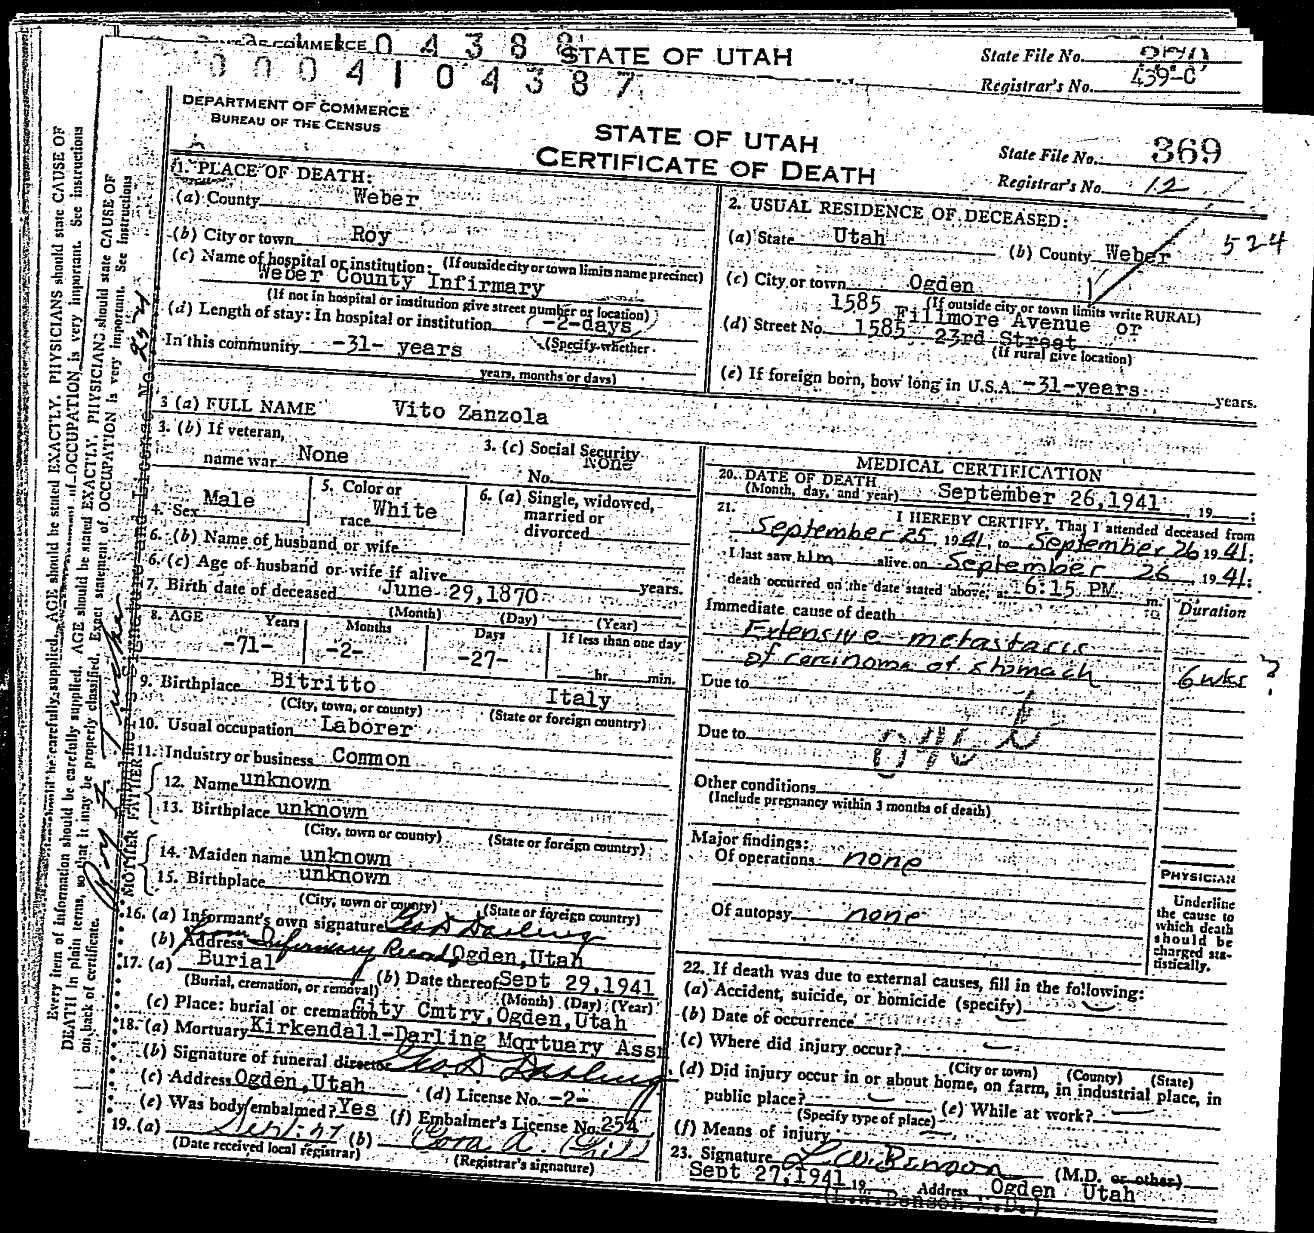 COMMERCE 0 4 3 8 8
STATE OF UTAH
State File No.
0 0 0 4 1 0 4 3 8 7
Registrar's No. 439-C
DEPARTMENT OF COMMERCE
BUREAU OF THE CENSUS
STATE OF UTAH
CERTIFICATE OF DEATH
State File No. 369
Registrar's No. 12
1. PLACE OF DEATH:
(a) County Weber
(b) City or town Roy
(c) Name of hospital or institution: (If outside city or town limits name precinct)
Weber County Infirmary
(If not in hospital or institution give street number or location)
(d) Length of stay: In hospital or institution -2-days
(Specify whether
In this community -31- years
years, months or days)
2. USUAL RESIDENCE OF DECEASED:
524
(a) State Utah (b) County Weber
(c) City or town Ogden
(If outside city or town limits write RURAL)
1585 Fillmore Avenue or
(d) Street No. 1585 23rd Street
(If rural give location)
(e) If foreign born, how long in U.S.A. -31-years years.
3 (a) FULL NAME Vito Zanzola
3. (b) If veteran,
name war None
3. (c) Social Security
No. None
4. Sex Male
5. Color or
race White
6. (a) Single, widowed,
married or
divorced
6. (b) Name of husband or wife
6. (c) Age of husband or wife if alive years.
7. Birth date of deceased June 29,1870
(Month) (Day) (Year)
8. AGE Years Months Days If less than one day
-71- -2- -27- hr. min.
9. Birthplace Bitritto Italy
(City, town, or county) (State or foreign country)
10. Usual occupation Laborer
11. Industry or business Common
FATHER
12. Name unknown
13. Birthplace unknown
(City, town or county) (State or foreign country)
MOTHER
14. Maiden name unknown
15. Birthplace unknown
(City, town or county) (State or foreign country)
16. (a) Informant's own signature Geo D Darling
(b) Address from Infirmary Records Ogden,Utah
17. (a) Burial (b) Date thereof Sept 29,1941
(Burial, cremation, or removal) (Month) (Day) (Year)
(c) Place: burial or cremation City Cmtry, Ogden,Utah
18. (a) Mortuary Kirkendall-Darling Mortuary Assn
(b) Signature of funeral director Geo D Darling
(c) Address Ogden,Utah (d) License No. -2-
(e) Was body embalmed? Yes (f) Embalmer's License No. 254
19. (a) Sept. 27 (b) Cora A.
(Date received local registrar) (Registrar's signature)
MEDICAL CERTIFICATION
20. DATE OF DEATH
(Month, day, and year) September 26,1941 19
21. I HEREBY CERTIFY, That I attended deceased from
September 25 1941, to September 26 1941;
I last saw him alive on September 26, 1941;
death occurred on the date stated above, at 6:15 PM m.
Immediate cause of death Duration
Extensive metastasis
of carcinoma of stomach 6 wks ?
Due to
Due to
046
Other conditions
(Include pregnancy within 3 months of death)
Major findings:
Of operations none
Of autopsy none
PHYSICIAN
Underline
the cause to
which death
should be
charged sta-
tistically.
22. If death was due to external causes, fill in the following:
(a) Accident, suicide, or homicide (specify)
(b) Date of occurrence
(c) Where did injury occur?
(City or town) (County) (State)
(d) Did injury occur in or about home, on farm, in industrial place, in
public place?
(Specify type of place) (e) While at work?
(f) Means of injury
23. Signature L W. Benson (M.D. or other)
Sept 27,1941 19 Address Ogden Utah
(L.W.Benson M.D.)
Every item of information should be carefully supplied. AGE should be stated EXACTLY. PHYSICIANS should state CAUSE OF
DEATH in plain terms, so that it may be properly classified. Exact statement of OCCUPATION is very important. See instructions
on back of certificate.